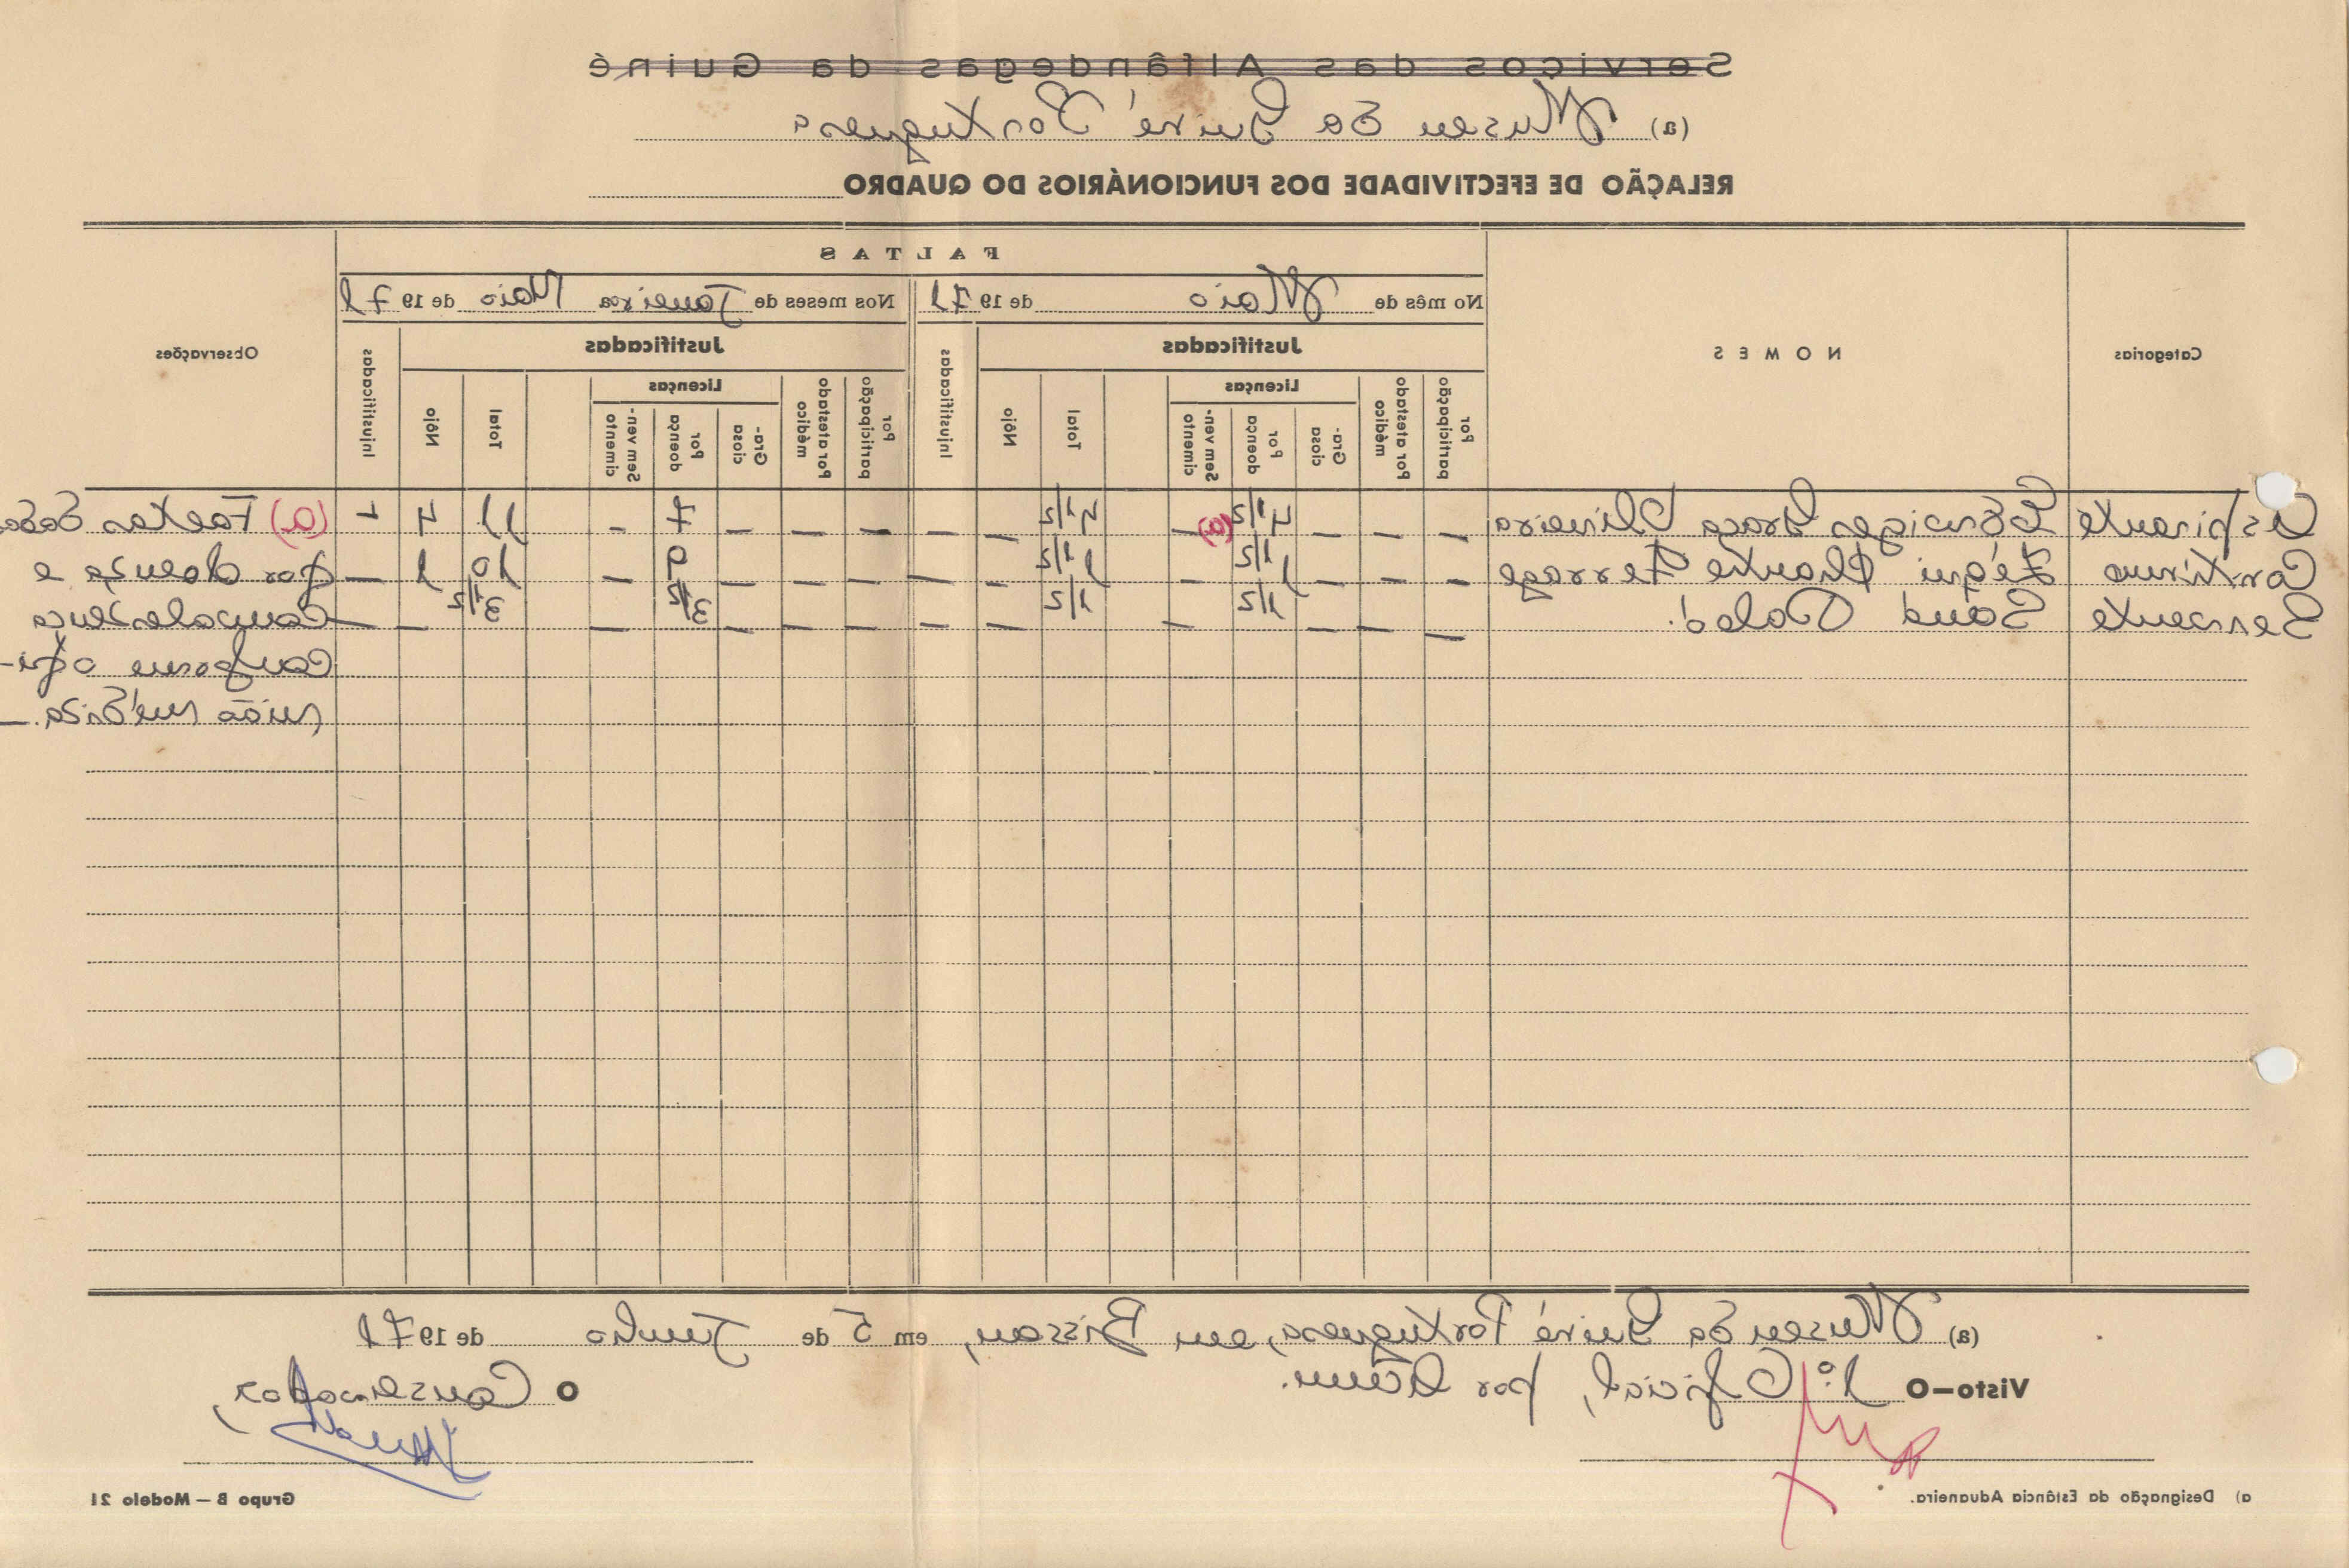 Serviços das Alfândegas da Guiné
(a) Museu da Guiné Portuguesa
RELAÇÃO DE EFECTIVIDADE DOS FUNCIONÁRIOS DO QUADRO
Categorias
N O M E S
F A L T A S
No mês de Maio de 1971
Nos meses de Janeiro a Maio de 1971
Observações
Justificadas
Por participação
Por atestado médico
Licenças
Gra-ciosa
Por doença
Sem ven-cimento
Total
Nôjo
Injustificadas
Justificadas
Por participação
Por atestado médico
Licenças
Gra-ciosa
Por doença
Sem ven-cimento
Total
Nôjo
Injustificadas
Aspirante Graça Oliveira — — — 4 1/2 (a) — 4 1/2 — — — — — 7 - 11 4 - (a) Faltas dadas
Contínuo — — — 1 1/2 — 1 1/2 — — — — — 9 — 10 1 — por doença e
Servente — — — 1/2 — 1/2 — — — — — 3 1/2 — 3 1/2 — — Convalescença
Conforme opi-
nião médica.—
(a) Museu da Guiné Portuguesa, em Bissau, em 5 de Junho de 1971
Visto—O 1.º Oficial,
O Conservador,
a) Designação da Estância Aduaneira.
Grupo B — Modelo 21